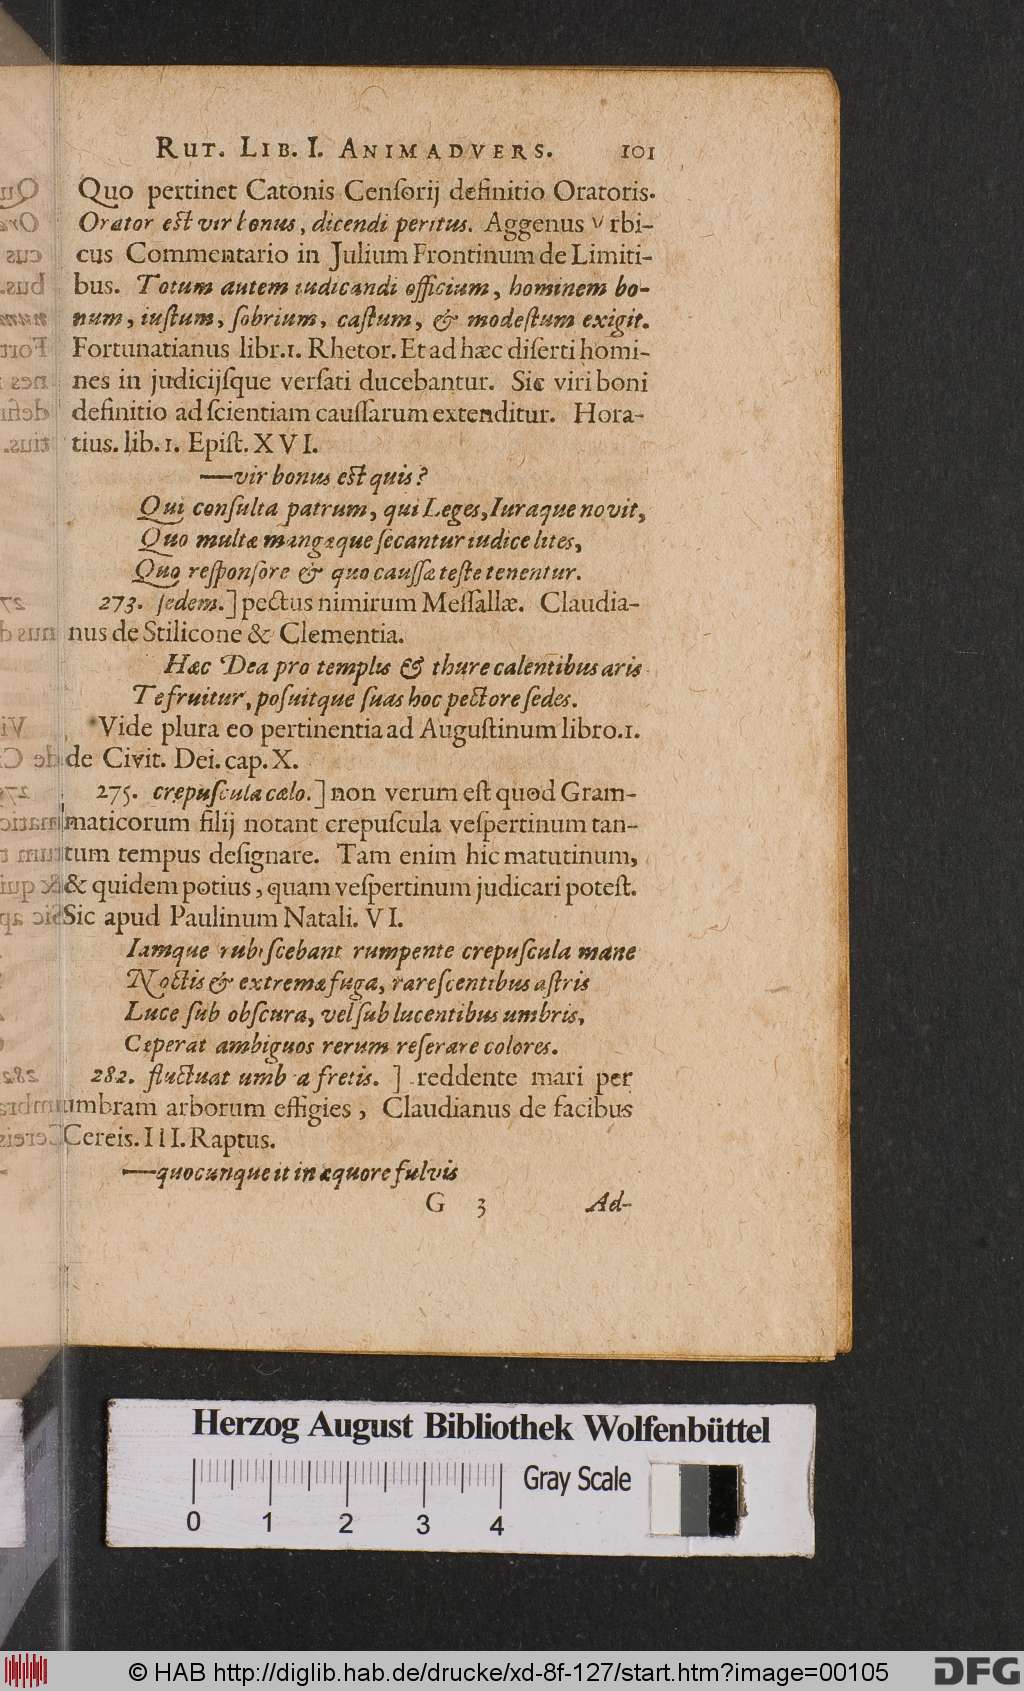 RUT. LIB. I. ANIMADVERS. 101
Quo pertinet Catonis Cenſorij definitio Oratoris.
Orator est vir bonus, dicendi peritus. Aggenus Vrbi-
cus Commentario in Julium Frontinum de Limiti-
bus. Totum autem iudicandi officium, hominem bo-
num, iuſtum, ſobrium, caſtum, & modeſtum exigit.
Fortunatianus libr. 1. Rhetor. Et ad hæc diſerti homi-
nes in judicijſque verſati ducebantur. Sic viri boni
definitio ad ſcientiam cauſſarum extenditur. Hora-
tius. lib. 1. Epiſt. XVI.
—vir bonus est quis?
Qui conſulta patrum, qui Leges, Iuraque novit,
Quo multæ mangæque ſecantur iudice lites,
Quo reſponſore & quo cauſſæ teſte tenentur.
273. ſedem.] pectus nimirum Meſſallæ. Claudia-
nus de Stilicone & Clementia.
Hæc Dea pro templis & thure calentibus aris
Te fruitur, poſuitque ſuas hoc pectore ſedes.
Vide plura eo pertinentia ad Auguſtinum libro. 1.
de Civit. Dei. cap. X.
275. crepuſcula cælo.] non verum eſt quod Gram-
maticorum filij notant crepuſcula veſpertinum tan-
tum tempus deſignare. Tam enim hic matutinum,
& quidem potius, quam veſpertinum judicari poteſt.
Sic apud Paulinum Natali. VI.
Iamque rubeſcebant rumpente crepuſcula mane
Noctis & extremæ fuga, rareſcentibus aſtris
Luce ſub obſcura, vel ſub lucentibus umbris,
Cæperat ambiguos rerum reſerare colores.
282. fluctuat umbra fretis.] reddente mari per
umbram arborum effigies, Claudianus de facibus
Cereis. III. Raptus.
—quocunque it in æquore fulvis
G 3 Ad-
Herzog August Bibliothek Wolfenbüttel
Gray Scale
0 1 2 3 4
© HAB http://diglib.hab.de/drucke/xd-8f-127/start.htm?image=00105 DFG